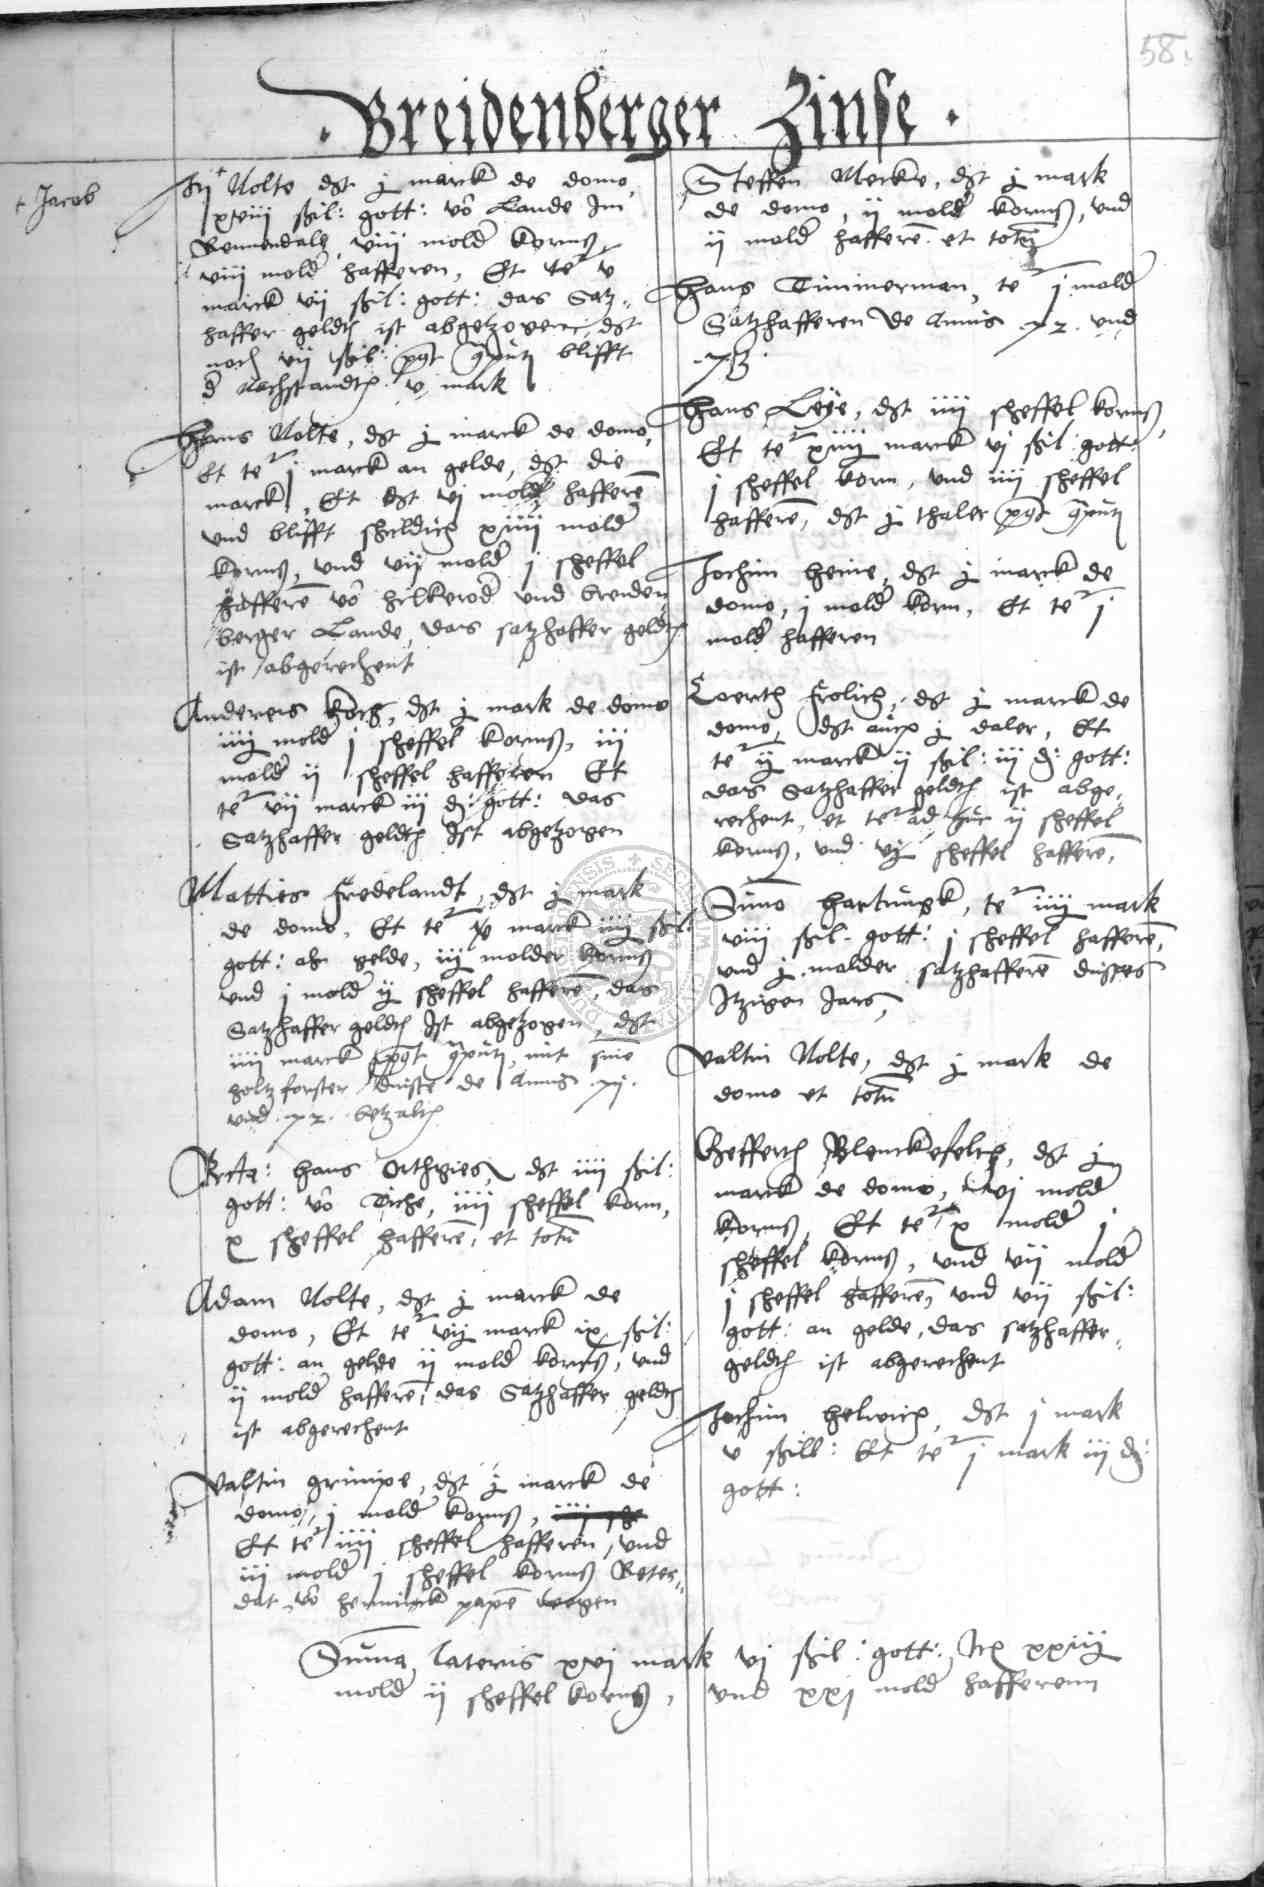 58.
· Breidenberger Zinse ·
+ Jacob
+ Nolte dst j marck de domo,
xviii ßil: gott: vo Lande Im
viii mold korns,
viii mold hafferen, Et te v
marck vii ßil: gott: das Satz-
haffer geldt ist abgetzogen, dst
noch vii ßil: blifft
d Nachstandt v mark
Hans Nolte, dst j marck de domo,
Et te j marck an gelde, dst die
marck, Et dst vj mold haffere
vnd blifft schuldich xiiij mold
korns, vnd vij mold j scheffel
haffere vo hilkerod vnd breiden
berger Lande, das satzhaffer geldt
ist abgerechent
Anderers Koch, dst j mark de domo
iiij mold j scheffel korns, iij
mold ij scheffel hafferen Et
te vii marck iij d: gott: das
Satzhaffer geldt Ist abgetzogen
Matties fredelandt, dst j mark
de domo, Et te marck iiij ßil:
gott: an gelde, iij molder korns
vnd j mold ij scheffel haffere, das
Satzhaffer geldt Ist abgetzogen, dst
iiij marck mit sine
holtzforster de Annis xj.
vnd 72. betzalt
Recta: Hans dst iiij ßil:
gott: vo Tiche, iiij scheffel korn,
x scheffel haffere, et totu
Adam Nolte, dst j marck de
domo, Et te vij marck ix ßil:
gott: an gelde ij mold korns, vnd
ij mold haffere, das Satzhaffer geldt
ist abgerechent
Valtin grimpe, dst j marck de
domo, j mold korns,
Et te iiij scheffel hafferen, vnd
iij mold j scheffel korns Retes-
dat vo henninck pape wegen
Steffen Mercke, dst j mark
de domo, ij mold korns, vnd
ij mold haffere et totu
Hans Timmerman, te j mold
Satzhafferen de Annis 72. vnd
73
Hans Leye, dst iiij scheffel korns,
Et te xiiij marck vj ßil: gott:
j scheffel korn, vnd iiij scheffel
haffere, dst j thaler
Jochim heine, dst j marck de
domo, j mold korn, Et te j
mold hafferen
Coerth frolich, dst j marck de
domo, dst auch j daler, Et
te ij marck ij ßil: iij d: gott:
das Satzhaffer geldt ist abge-
rechent, et te ad huc ij scheffel
korns, vnd vj scheffel haffere,
Simo hartungk, te iiij mark
viii ßil. gott: j scheffel haffere,
vnd j molder satzhaffere dusses
Itzigen Jars,
Valtin Nolte, dst j mark de
domo et totu
Geffert Blenckefelth, dst j
marck de domo, vj mold
korns, Et te x mold j
scheffel korns, vnd vii mold
j scheffel haffere, vnd vij ßil:
gott: an gelde, das satzhaffer-
geldt ist abgerechent
Jochim helwich, dst j mark
v ßill: Et te j mark iij d:
gott:
Suma lateris xvj mark vj ßil: gott: Ite xxiij
mold ij scheffel korns, vnd xxj mold hafferenn